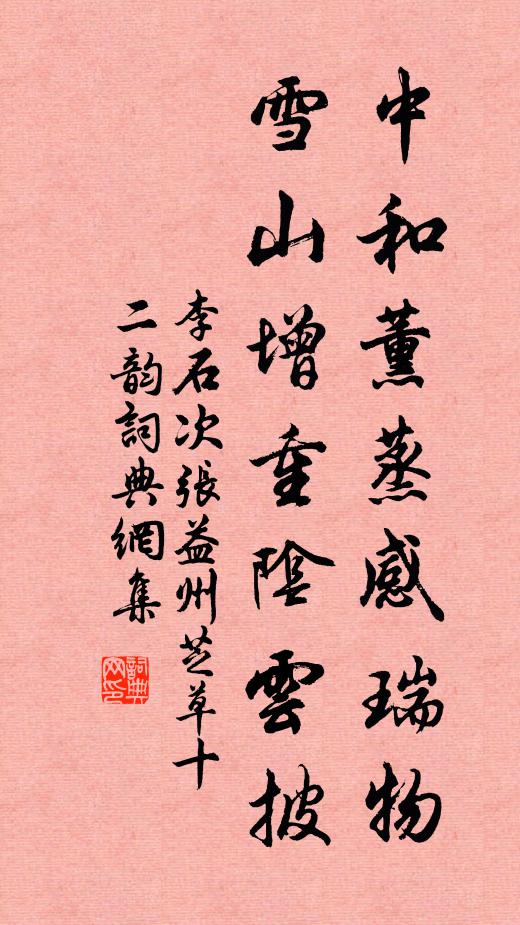 中和薰蒸感瑞物
雪山增重陰雲披
李石次張益州芝草十
二韵詞典網集
詞典
网印